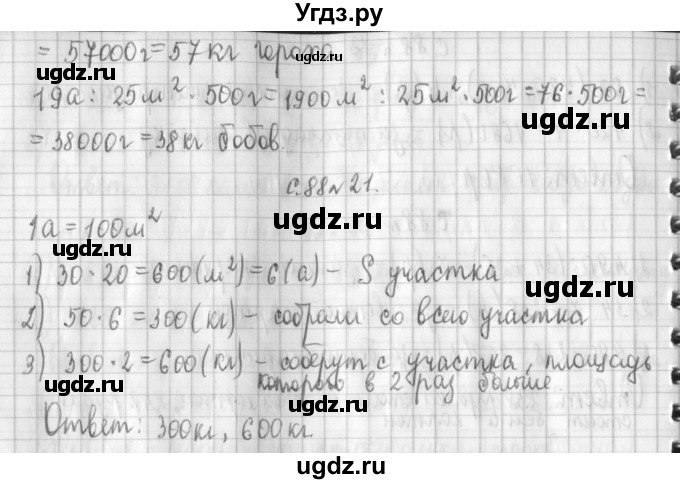 Угдз.ру
= 57000г = 57 кг гороха
19а : 25м² · 500г = 1900м² : 25м² · 500г = 76 · 500г =
ugdz.ru
ugdz.ru
= 38000г = 38 кг бобов.
ugdz.ru
с.88 № 21.
ugdz.ru
1а = 100м²
ugdz.ru
1) 30 · 20 = 600 (м²) = 6 (а) – S участка
ugdz.ru
2) 50 · 6 = 300 (кг) – собрали со всего участка
ugdz.ru
3) 300 · 2 = 600 (кг) – соберут с участка, площадь
которого в 2 раз больше
ugdz.ru
ugdz.ru
Ответ: 300кг, 600кг.
ugdz.ru
ugdz.ru